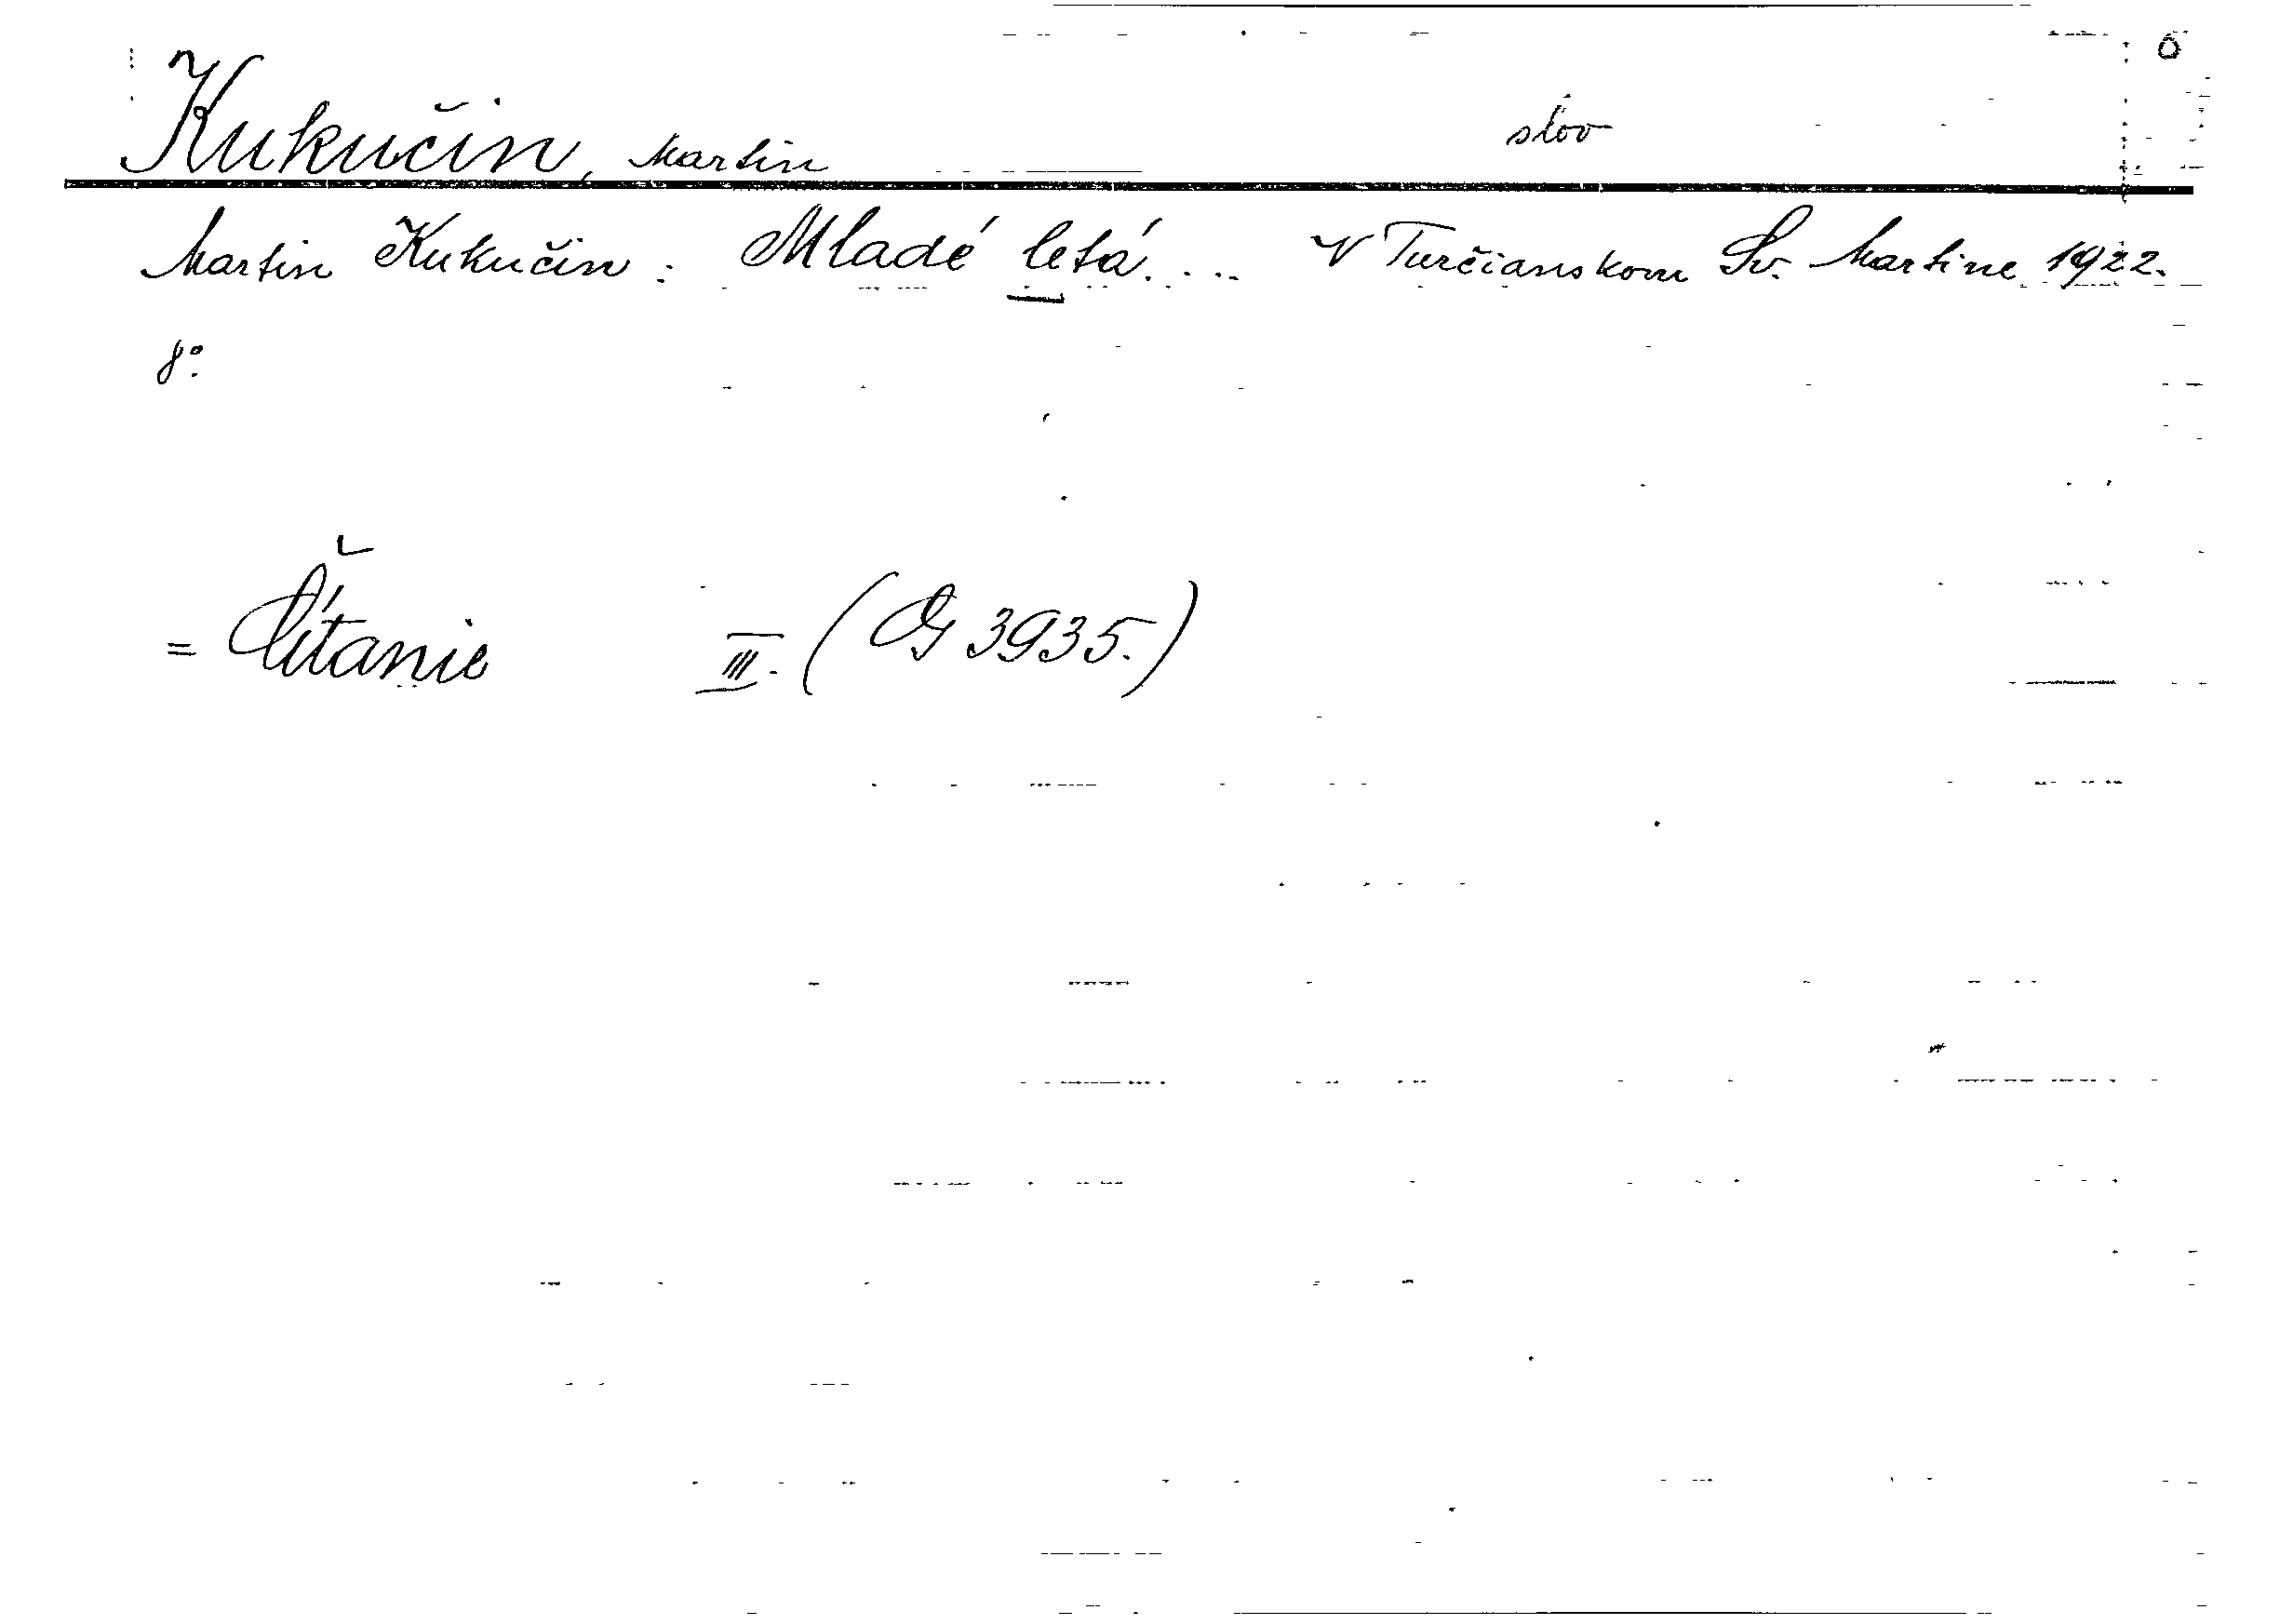 Kukučín, Martin slov
Martin Kukučín: Mladé letá.... V Turčianskom Sv. Martine 1922.
8°.
= Čítanie III. (G 3935.)